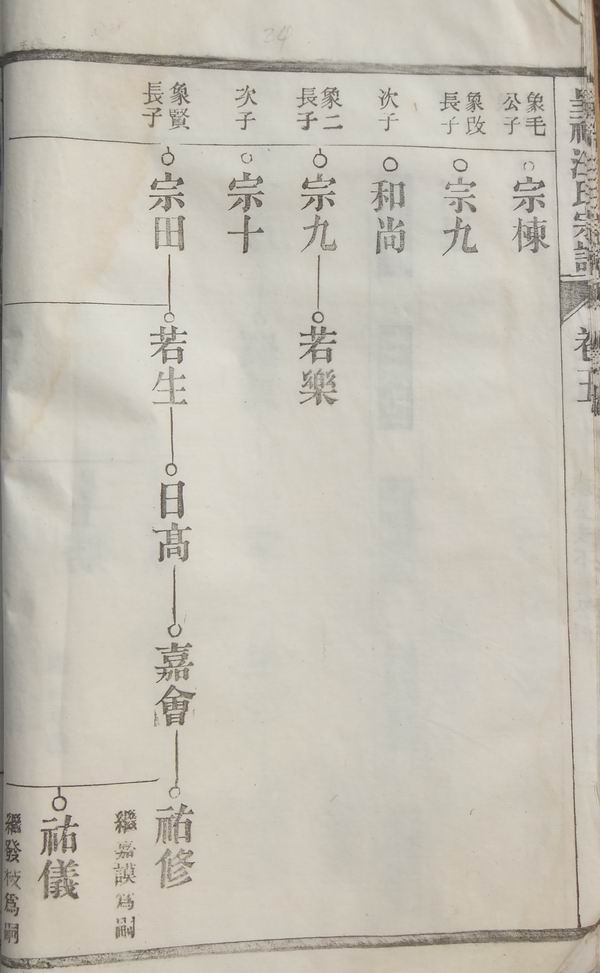 汪氏宗譜
卷五
象毛公子
宗棟
象改長子
宗九
次子
和尚
象二長子
宗九
若樂
次子
宗十
象賢長子
宗田
若生
日高
嘉會
祐修
繼嘉謨爲嗣
祐儀
繼發枝爲嗣
34